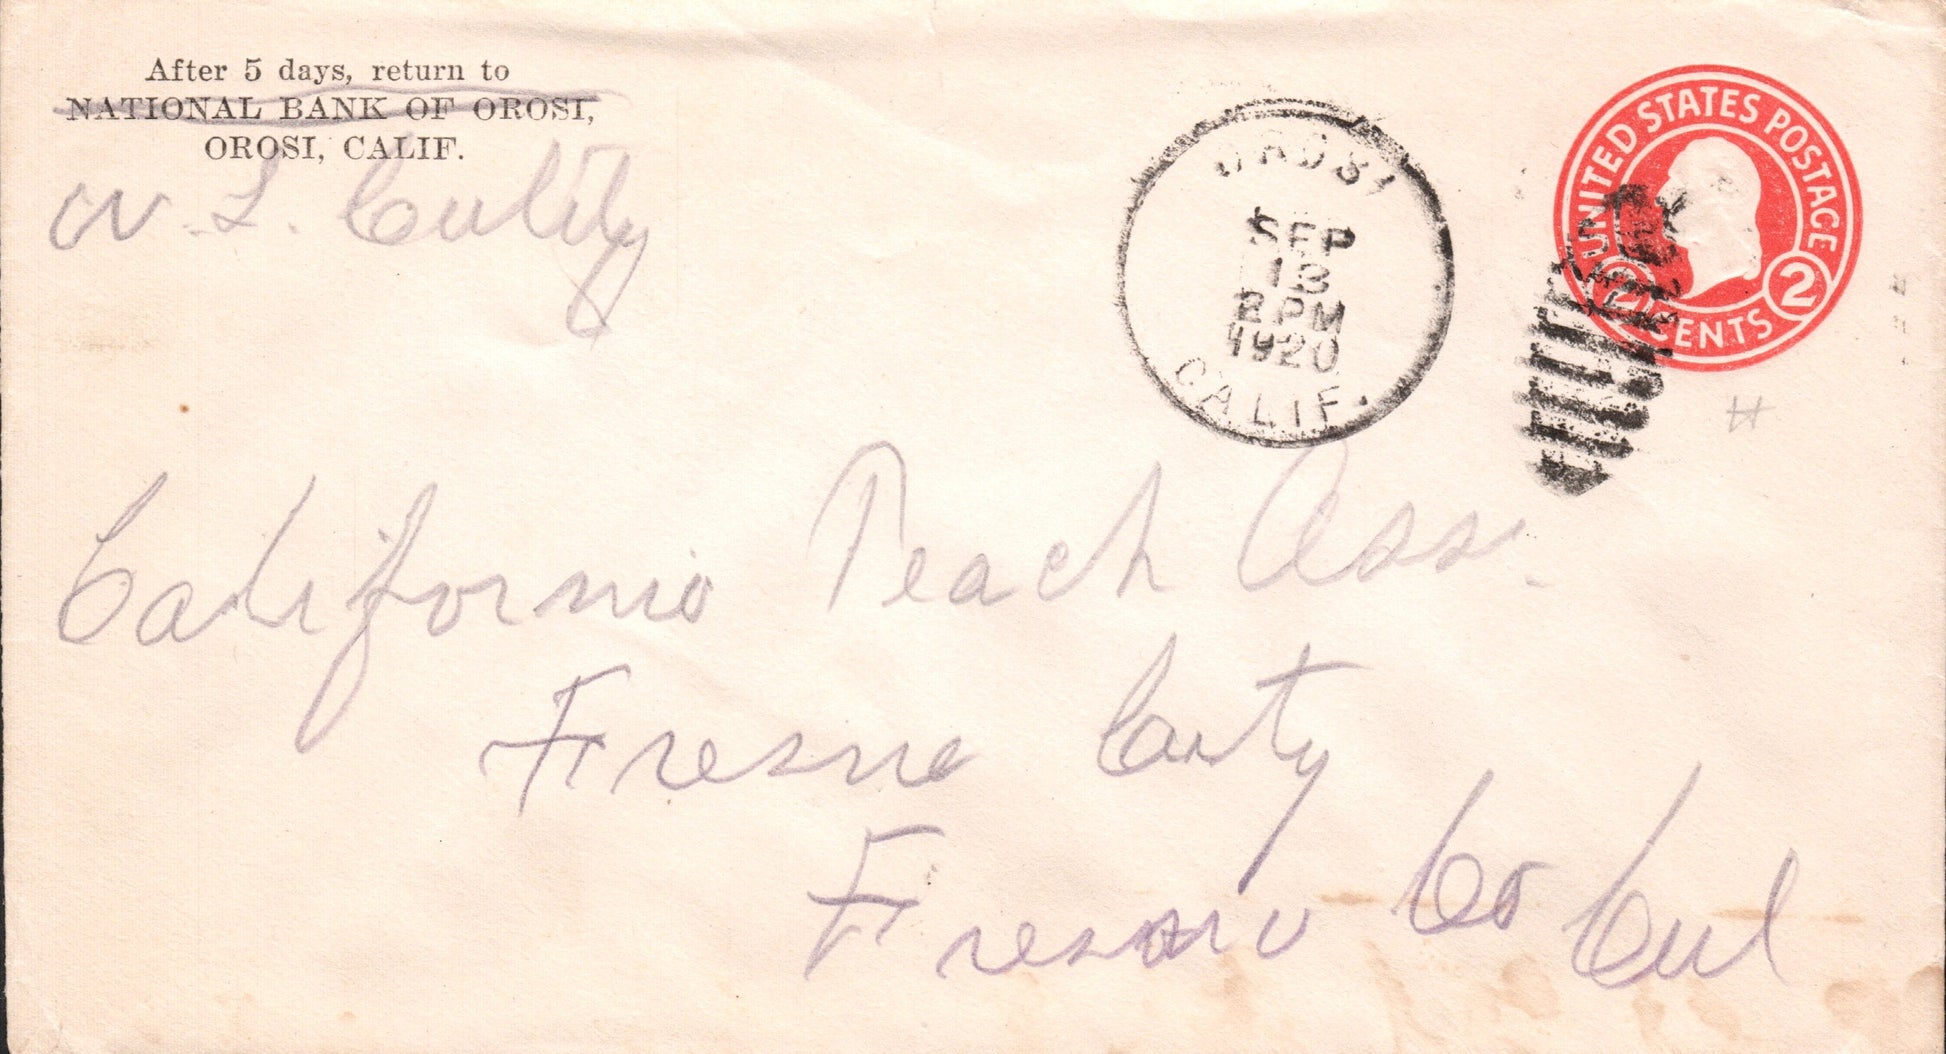 After 5 days, return to
NATIONAL BANK OF OROSI,
OROSI, CALIF.
W. L.
OROSI
SEP
13
PM
1920
CALIF.
UNITED STATES POSTAGE
2 CENTS 2
California Peach Assn.
Fresno
Fresno Co Cal